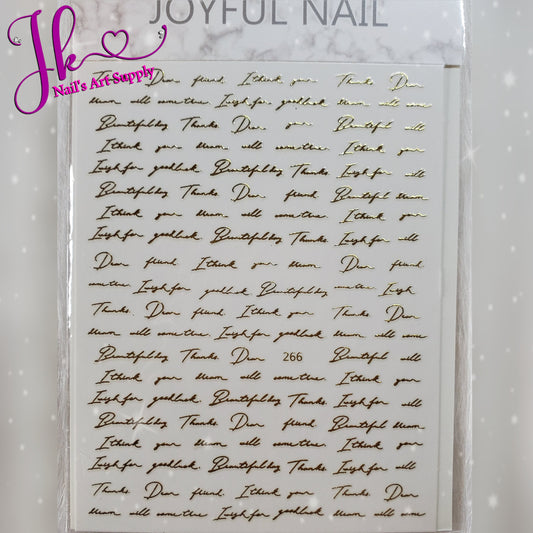 JOYFUL NAIL
Jk
Nail's Art Supply
Dear friend. I think your Thanks. Dear
will come true I wish for good luck. will come
Beautiful boy Thanks. Dear your Beautiful will
I think your will come true I think your
I wish for good luck. Beautiful boy Thanks. I wish for will
Beautiful boy Thanks. Dear friend. Beautiful
I think your will come true I think your
I wish for good luck. Beautiful boy Thanks. I wish for will
Dear friend. I think your Dear friend.
come true I wish for good luck. Beautiful boy come true I wish
Thanks. Dear friend. I think your Thanks. Dear
will come true I wish for good luck. will come
Beautiful boy Thanks. Dear 266 Beautiful will
I think your will come true I think your
I wish for good luck. Beautiful boy Thanks. I wish for will
Beautiful boy Thanks. Dear friend. Beautiful
I think your will come true I think your
I wish for good luck. Beautiful boy Thanks. I wish for will
Thanks. Dear friend. I think your Thanks. Dear
will come true I wish for good luck. will come